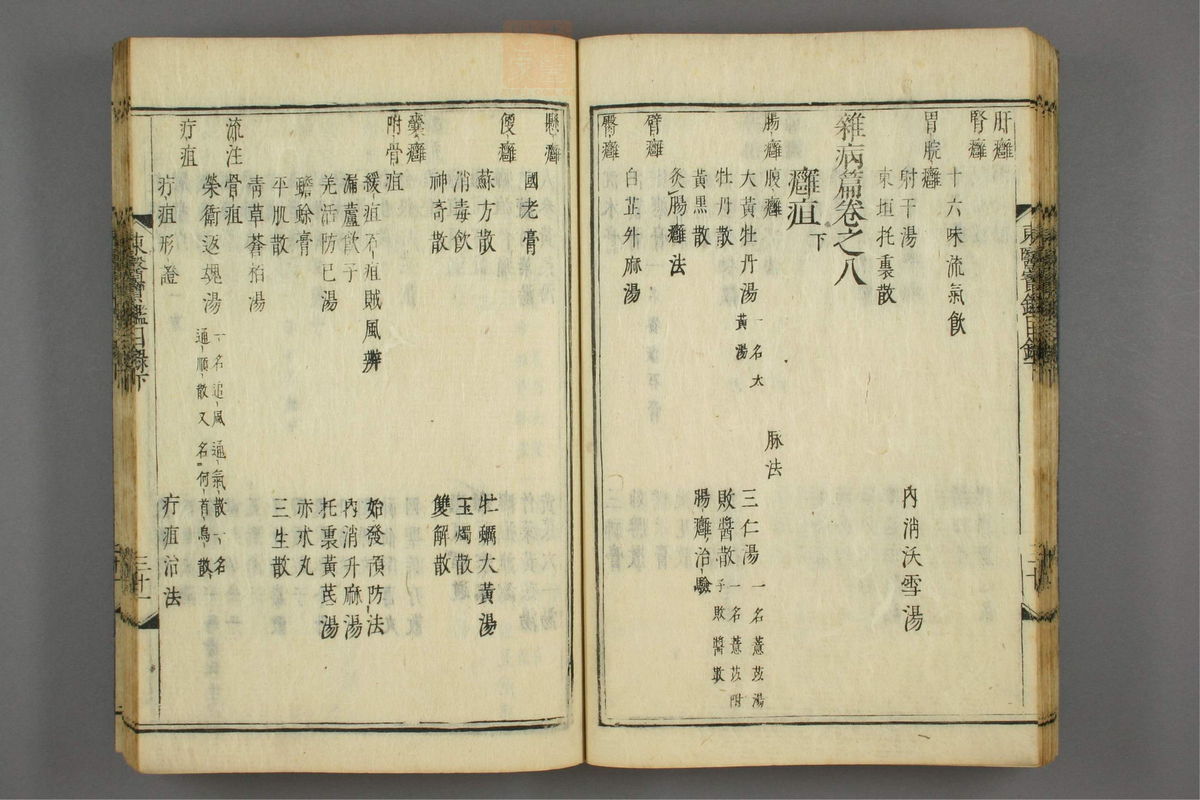 肝癰
腎癰
十六味流氣飮
胃脘癰
射干湯
內消沃雪湯
東垣托裏散
雜病篇卷之八
癰疽下
脉法
腸癰腹癰
大黃牡丹湯 一名大黃湯
三仁湯 一名薏苡湯
牡丹散
敗醬散 一名薏苡附子敗醬散
黃黑散
腸癰治驗
灸腸癰法
臂癰
白芷升麻湯
臀癰
懸癰
國老膏
便癰
蘇方散
牡蠣大黃湯
消毒飮
玉燭散
神奇散
雙解散
囊癰
附骨疽
緩疽石疽賊風辨
始發預防法
漏蘆飮子
內消升麻湯
羌活防己湯
托裏黃芪湯
蟾蛤膏
赤朮丸
平肌散
三生散
靑草蒼栢湯
流注骨疽
榮衛返魂湯 一名追風通氣散一名通順散又名何首烏散
疔疽
疔疽形證
疔疽治法
東醫寶鑑目錄下
三十一